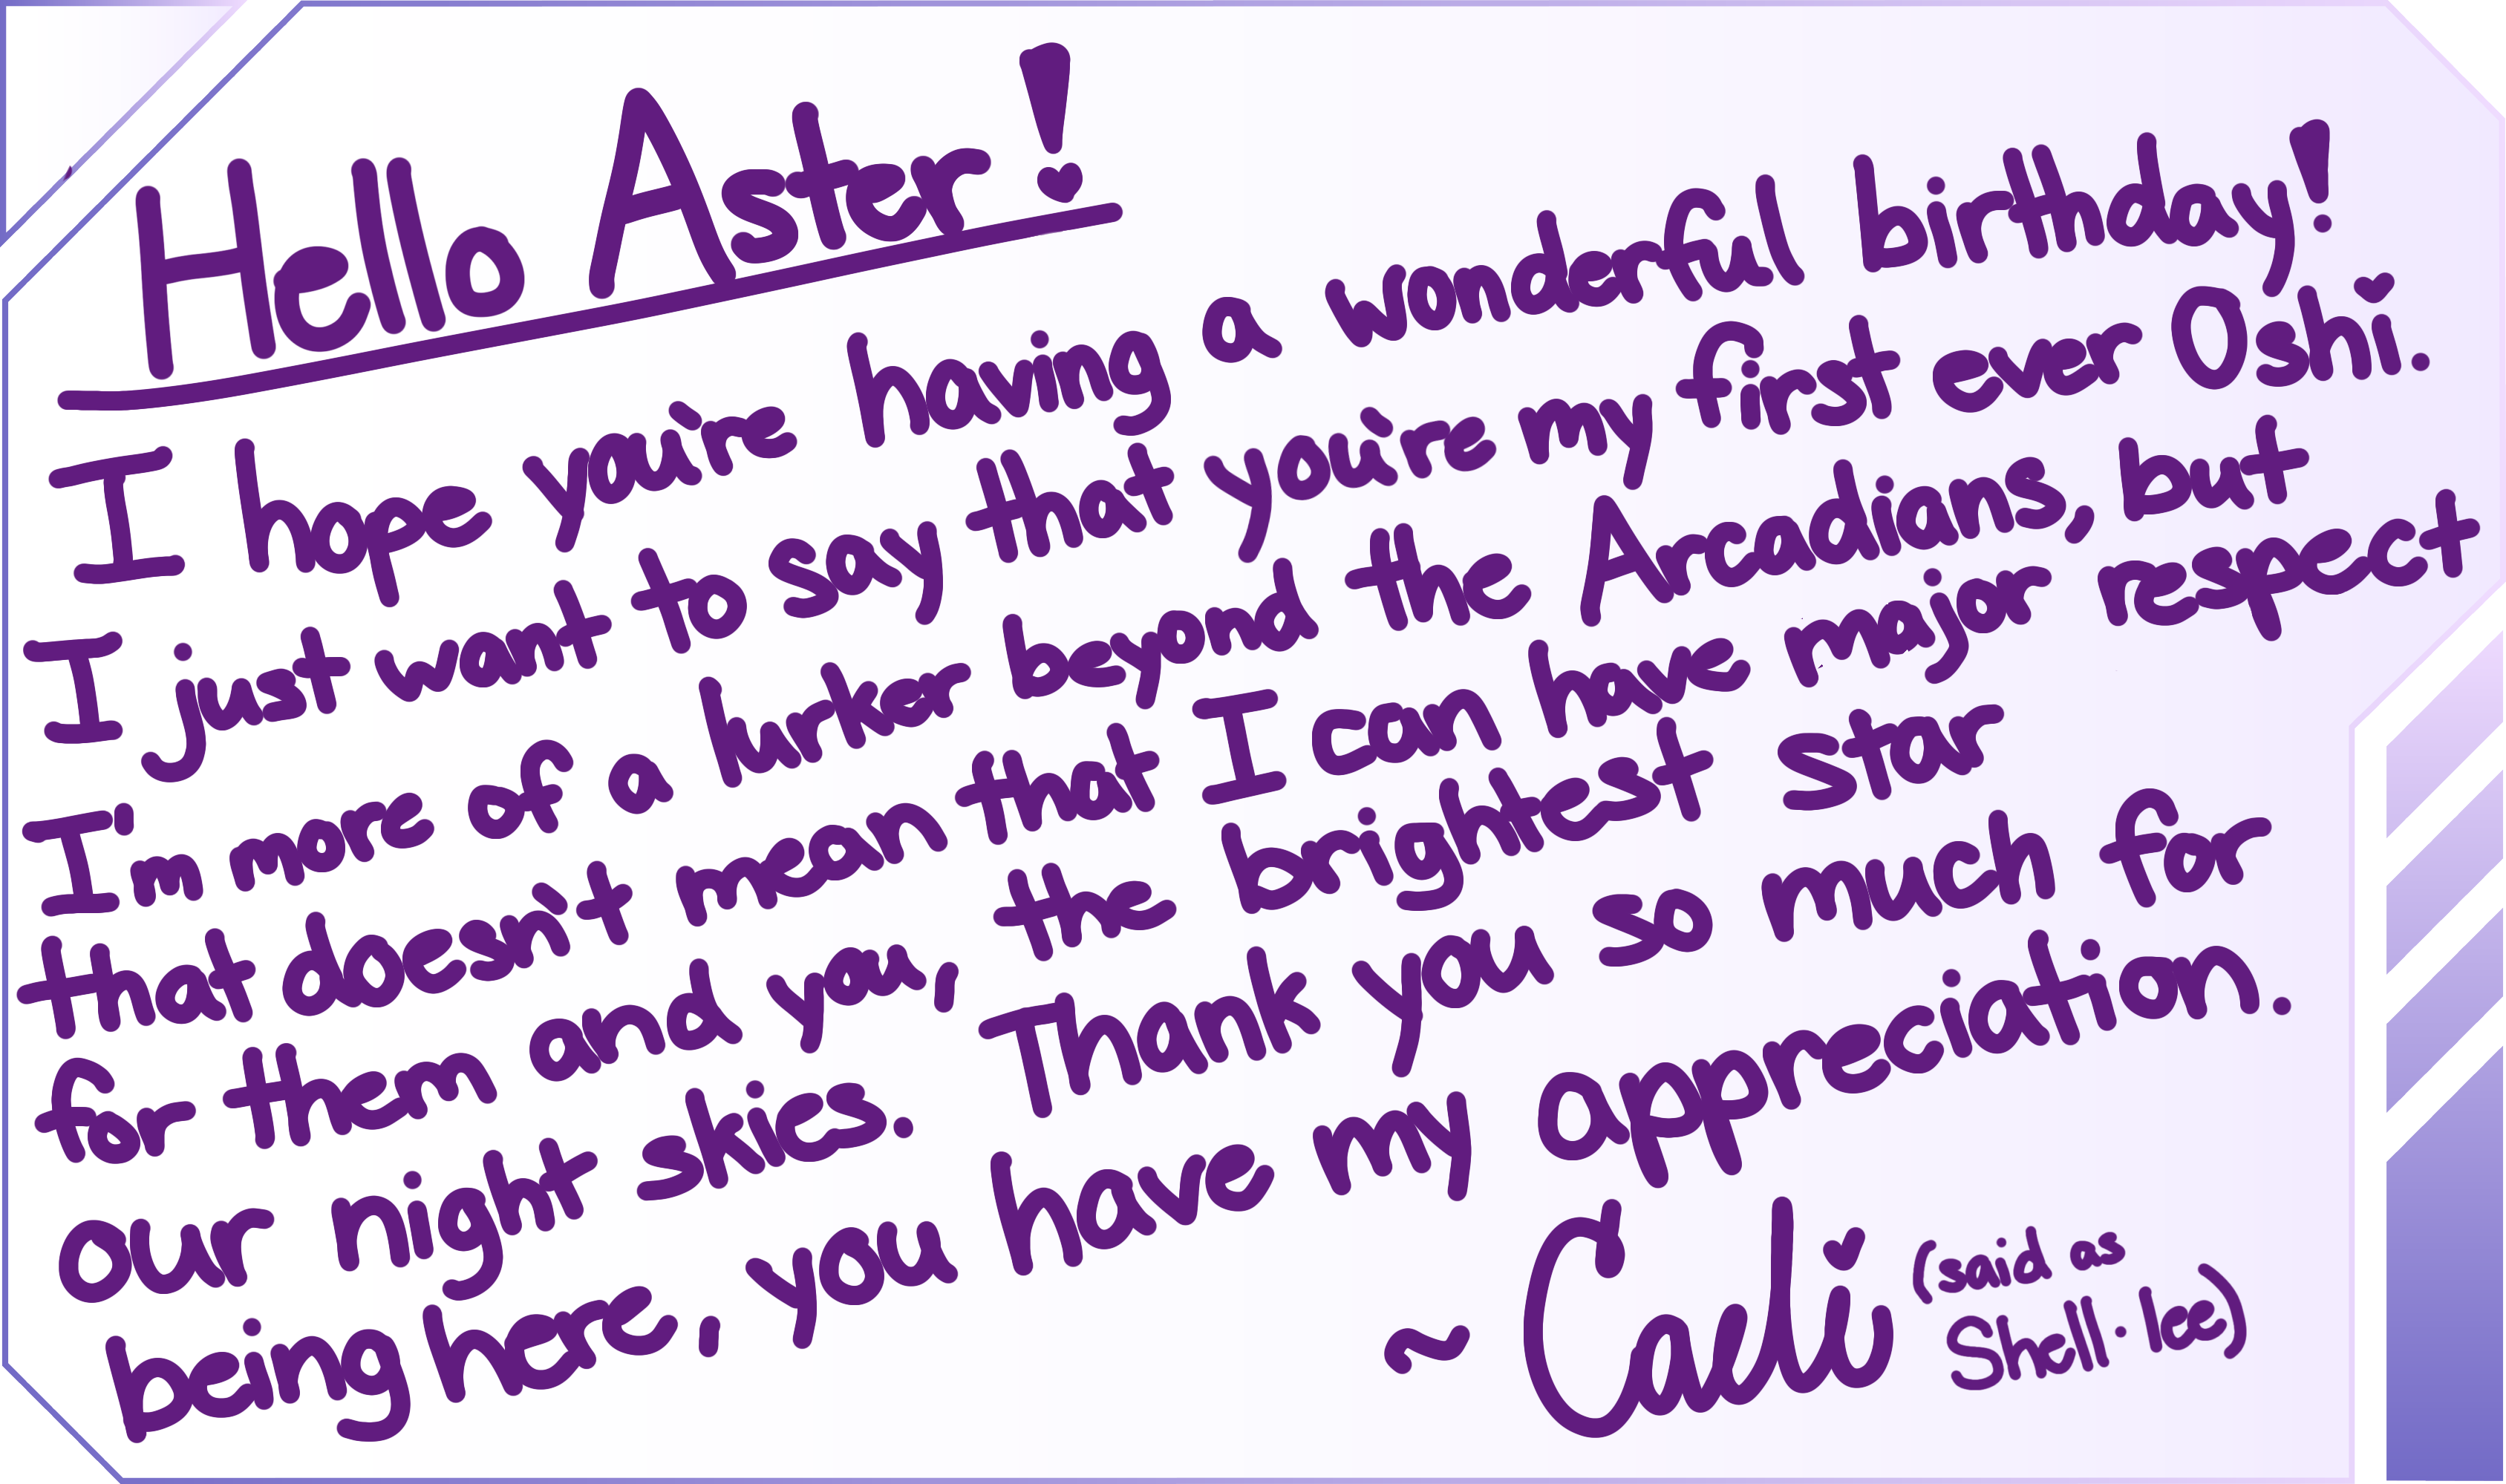 Hello Aster!
I hope you're having a wonderful birthday!
I just want to say that you're my first ever Oshi.
I'm more of a lurker beyond the Arcadians, but
that doesn't mean that I can have major respect
for them and you, the brightest star
our night skies. Thank you so much for
being here, you have my appreciation.
~ (said as
Shell·lee)